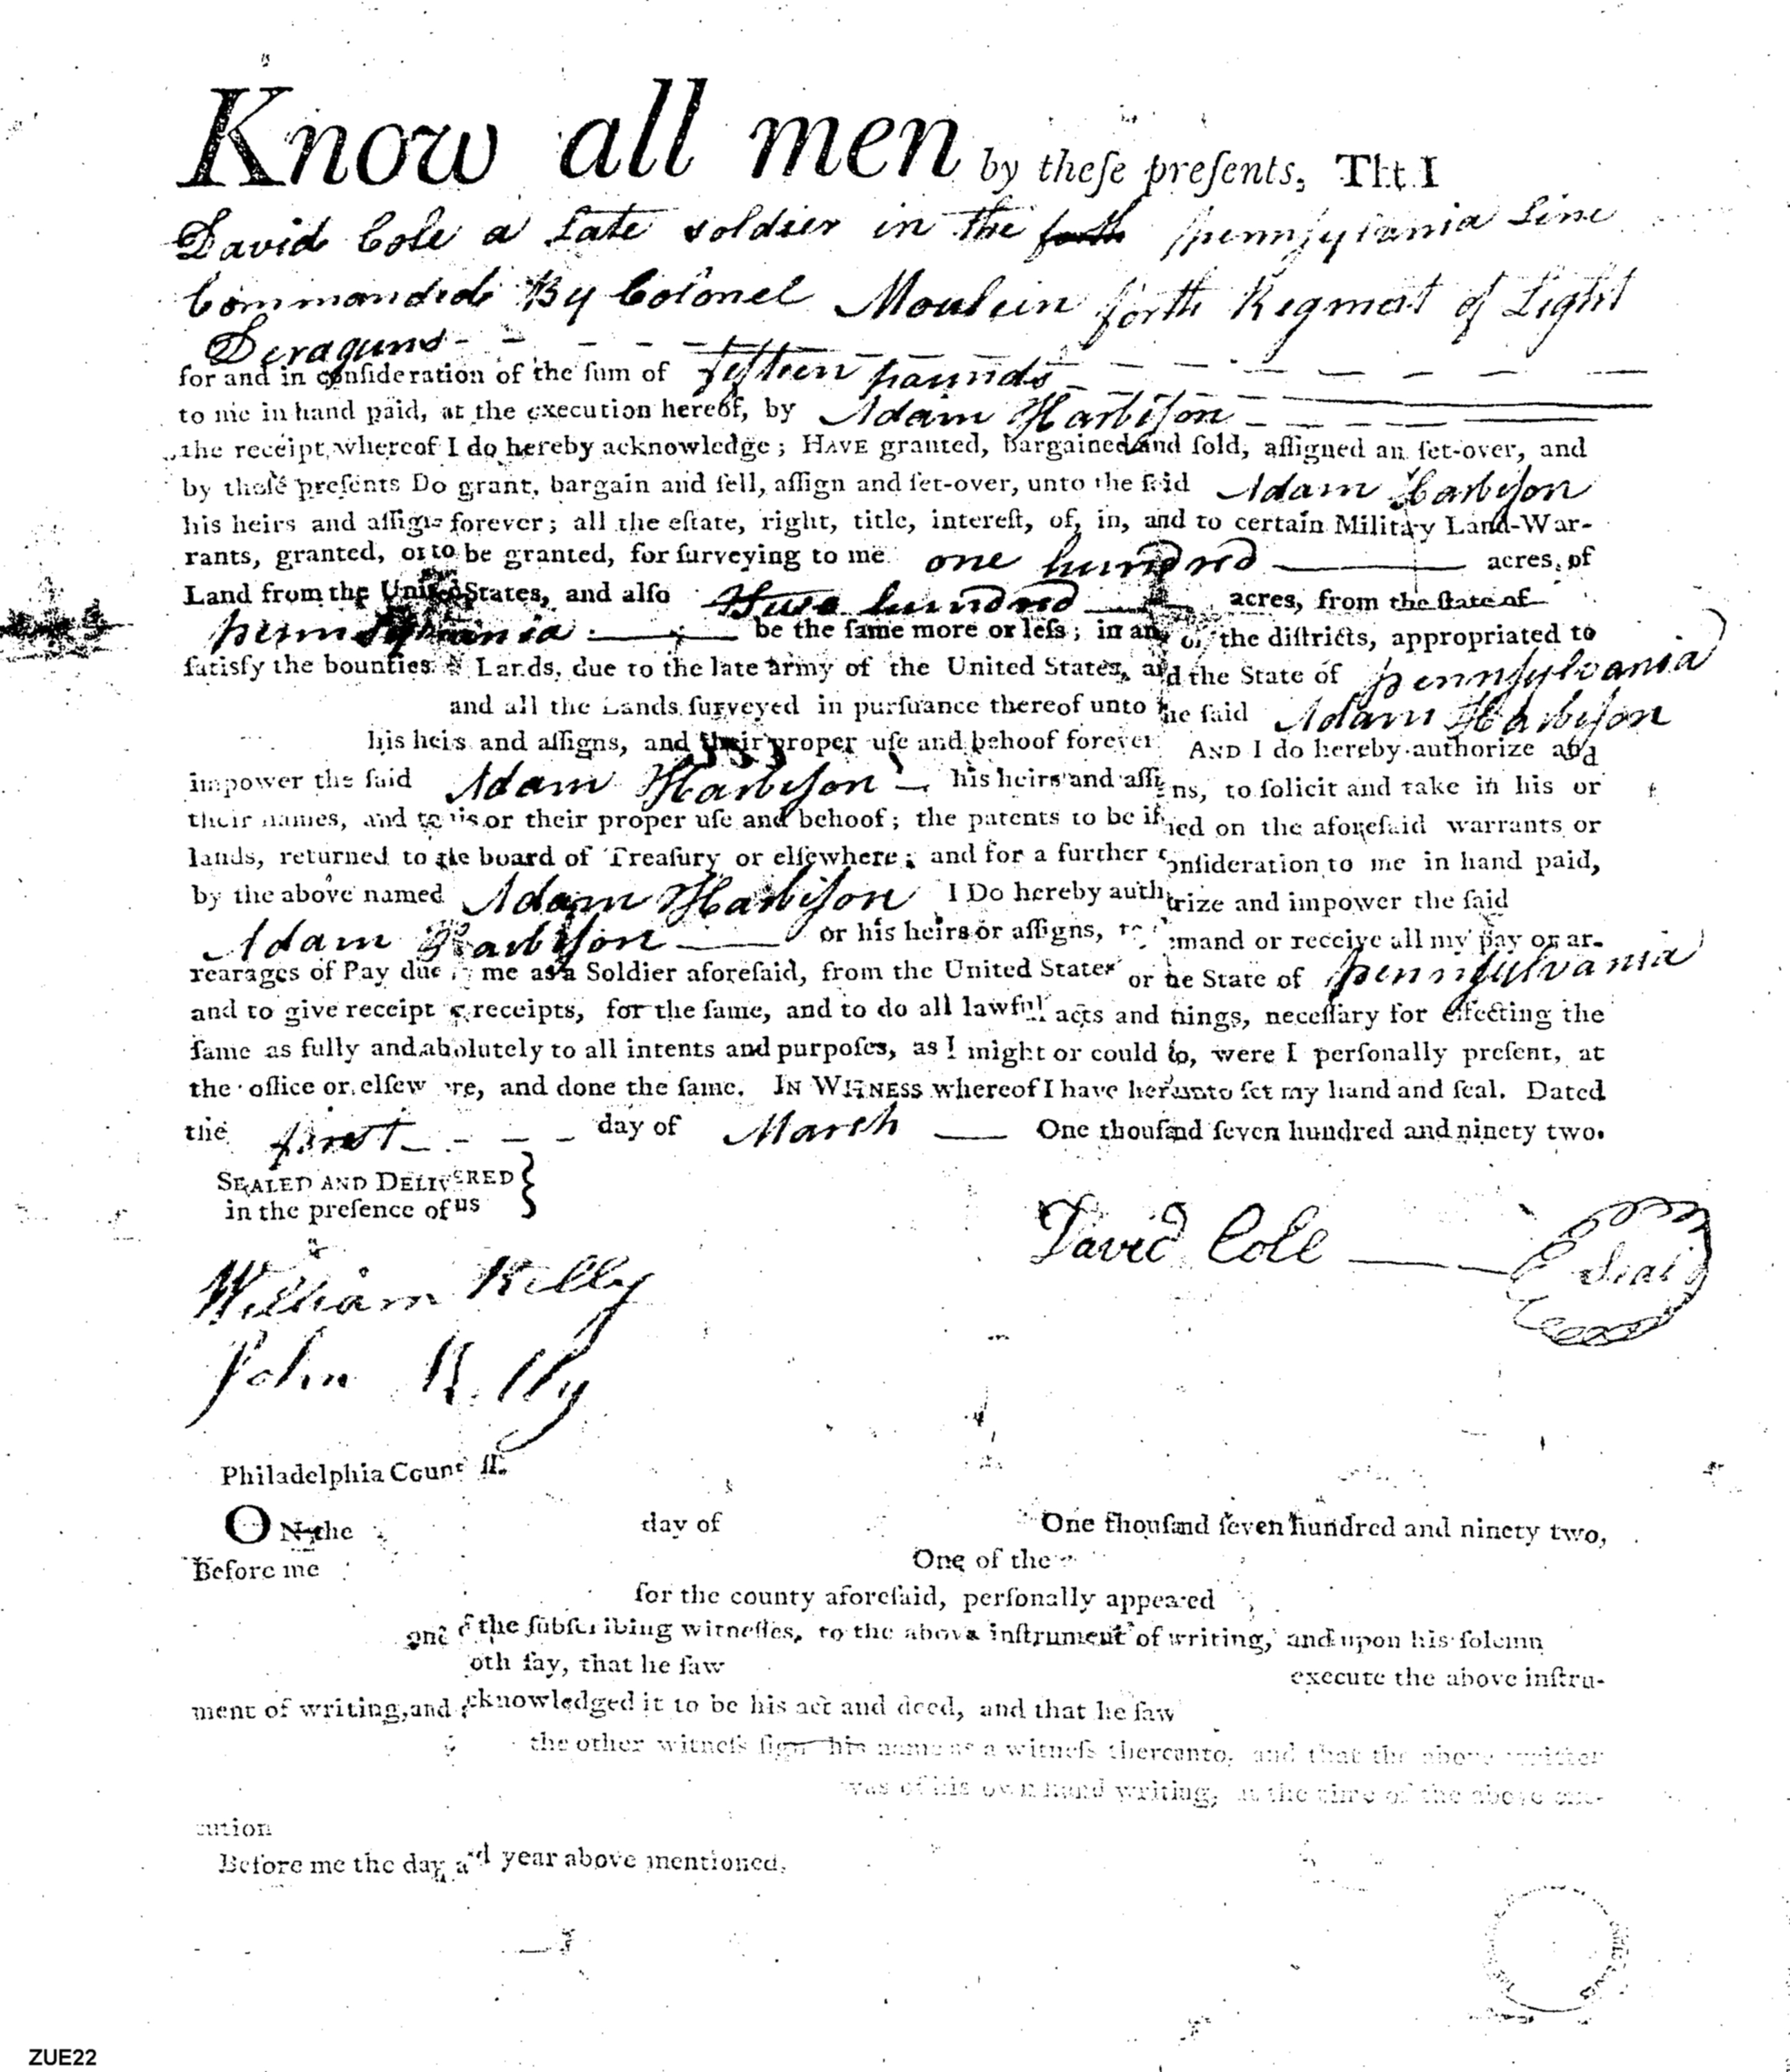 Know all men by theſe preſents, Tht I
David Cole a Late soldier in the forth pennsylvania Line
Commanded By Colonel Moulein forth Regment of Light
Deraguns
for and in conſideration of the ſum of fifteen pounds
to me in hand paid, at the execution hereof, by Adam Harbiſon
the receipt whereof I do hereby acknowledge; HAVE granted, bargained and ſold, aſſigned an ſet-over, and
by theſe preſents Do grant, bargain and ſell, aſſign and ſet-over, unto the ſaid Adam Harbiſon
his heirs and aſſigns forever; all the eſtate, right, title, intereſt, of, in, and to certain Military Land-War-
rants, granted, or to be granted, for ſurveying to me one hundred acres, of
Land from the United States, and alſo Two hundred acres, from the ſtate of
pennsylvania be the ſame more or leſs; in any of the diſtricts, appropriated to
ſatisfy the bounties Lands, due to the late army of the United States, and the State of pennſylvania
and all the Lands ſurveyed in purſuance thereof unto the ſaid Adam Harbiſon
his heis and aſſigns, and their proper uſe and behoof forever AND I do hereby authorize and
impower the ſaid Adam Harbiſon his heirs and aſſigns, to ſolicit and take in his or
their names, and to his or their proper uſe and behoof; the patents to be iſſued on the aforeſaid warrants or
lands, returned to the board of Treaſury or elſewhere; and for a further conſideration to me in hand paid,
by the above named Adam Harbiſon I Do hereby authorize and impower the ſaid
Adam Harbiſon or his heirs or aſſigns, to demand or receive all my pay or ar-
rearages of Pay due me as a Soldier aforeſaid, from the United States or he State of pennſylvania
and to give receipt or receipts, for the ſame, and to do all lawful acts and things, neceſſary for effecting the
ſame as fully and abolutely to all intents and purpoſes, as I might or could do, were I perſonally preſent, at
the office or elſewere, and done the ſame. IN WITNESS whereof I have hereunto ſet my hand and ſeal. Dated
the first day of March One thouſand ſeven hundred and ninety two.
SEALED AND DELIVERED
in the preſence of us
David Cole Seal
William Killy
John Killy
Philadelphia Count ſſ.
ON the day of One thouſand ſeven hundred and ninety two,
Before me One of the
for the county aforeſaid, perſonally appeared
one of the ſubſcribing witneſſes, to the above inſtrument of writing, and upon his ſolemn
oth ſay, that he ſaw execute the above inſtru-
ment of writing, and acknowledged it to be his act and deed, and that he ſaw
the other witneſs ſign his name as a witneſs thereunto, and that the above written
was of his own hand writing, at the time of the above exe-
cution
Before me the day and year above mentioned.
ZUE22